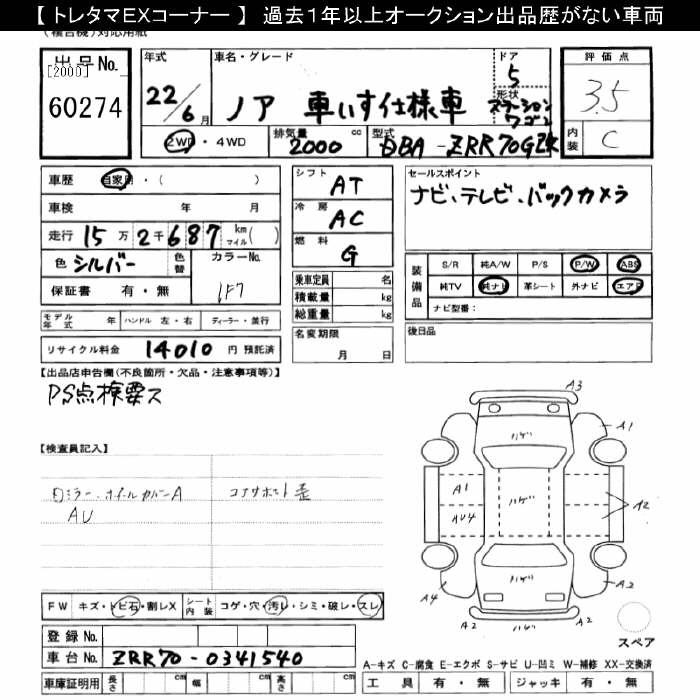 【 トレタマEXコーナー 】 過去1年以上オークション出品歴がない車両
(複合機)対応用紙
出品No.
[2000]
60274
年式
22/6月
車名・グレード
ノア 車いす仕様車
ドア
5
形状
ステーションワゴン
評価点
3.5
内装
C
2WD・4WD
排気量
2000 cc
型式
DBA-ZRR70G改
車歴 自家用・( )
車検 年 月
走行 15万2千687 km マイル( )
色 シルバー
色替
カラーNo.
1F7
保証書 有・無
モデル年式 年 ハンドル 左・右 ディーラー・並行
リサイクル料金 14010 円 預託済
シフト
AT
冷房
AC
燃料
G
乗車定員 名
積載量 kg
総重量 kg
名変期限
月 日
セールスポイント
ナビ、テレビ、バックカメラ
装備品
S/R 純A/W P/S P/W ABS
純TV 純ナビ 革シート 外ナビ エアB
ナビ型番:
後日品
【出品店申告欄(不良箇所・欠品・注意事項等)】
PS点検要ス
【検査員記入】
ミラー、ホイールカバーA
AU
コアサポート歪
FW キズ・トビ石・割レX
シート内装 コゲ・穴・汚レ・シミ・破レ・スレ
登録No.
車台No. ZRR70-0341540
車庫証明用 長さ cm 幅 cm 高さ cm
A3
ハゲ
A1
A1
ハゲ
AU4
A2
A4
A3
A2
ハゲ
A2
スペア
A-キズ C-腐食 E-エクボ S-サビ U-凹ミ W-補修 XX-交換済
工具 有・無 ジャッキ 有・無